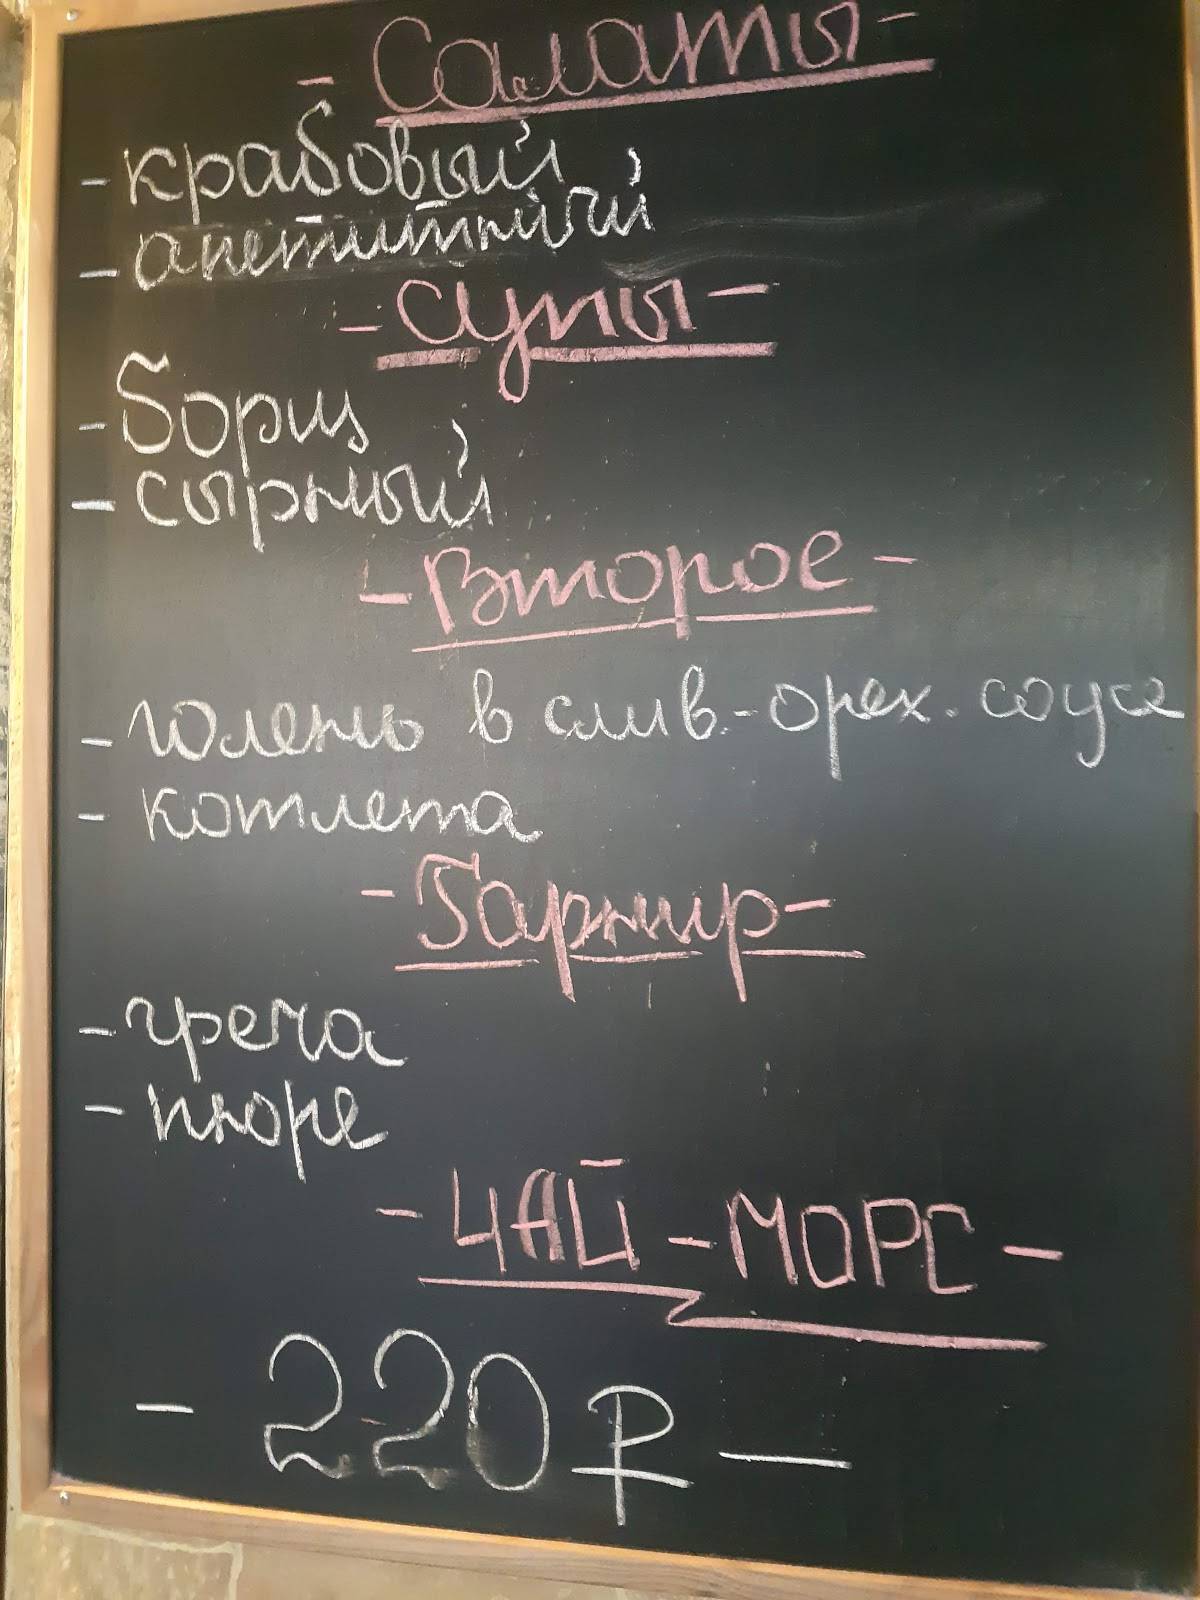 - Салаты -
- крабовый
- апетитный
- Супы -
- борщ
- сырный
- Второе -
- голень в слив.-орех. соусе
- котлета
- Гарнир -
- греча
- пюре
- ЧАЙ - МОРС -
- 220 ₽ -